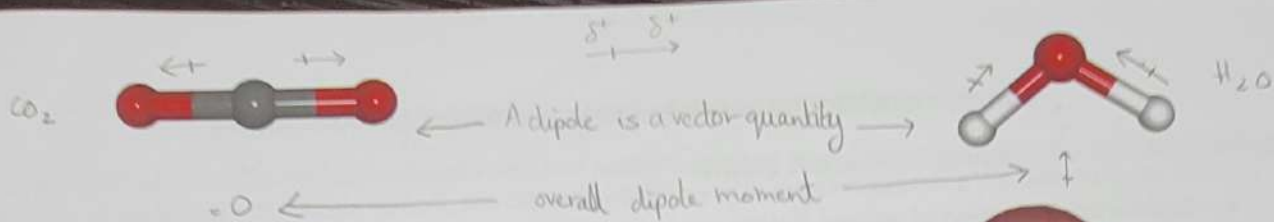 δ⁺ δ⁺
CO₂
H₂O
A dipole is a vector quantity
= 0
overall dipole moment